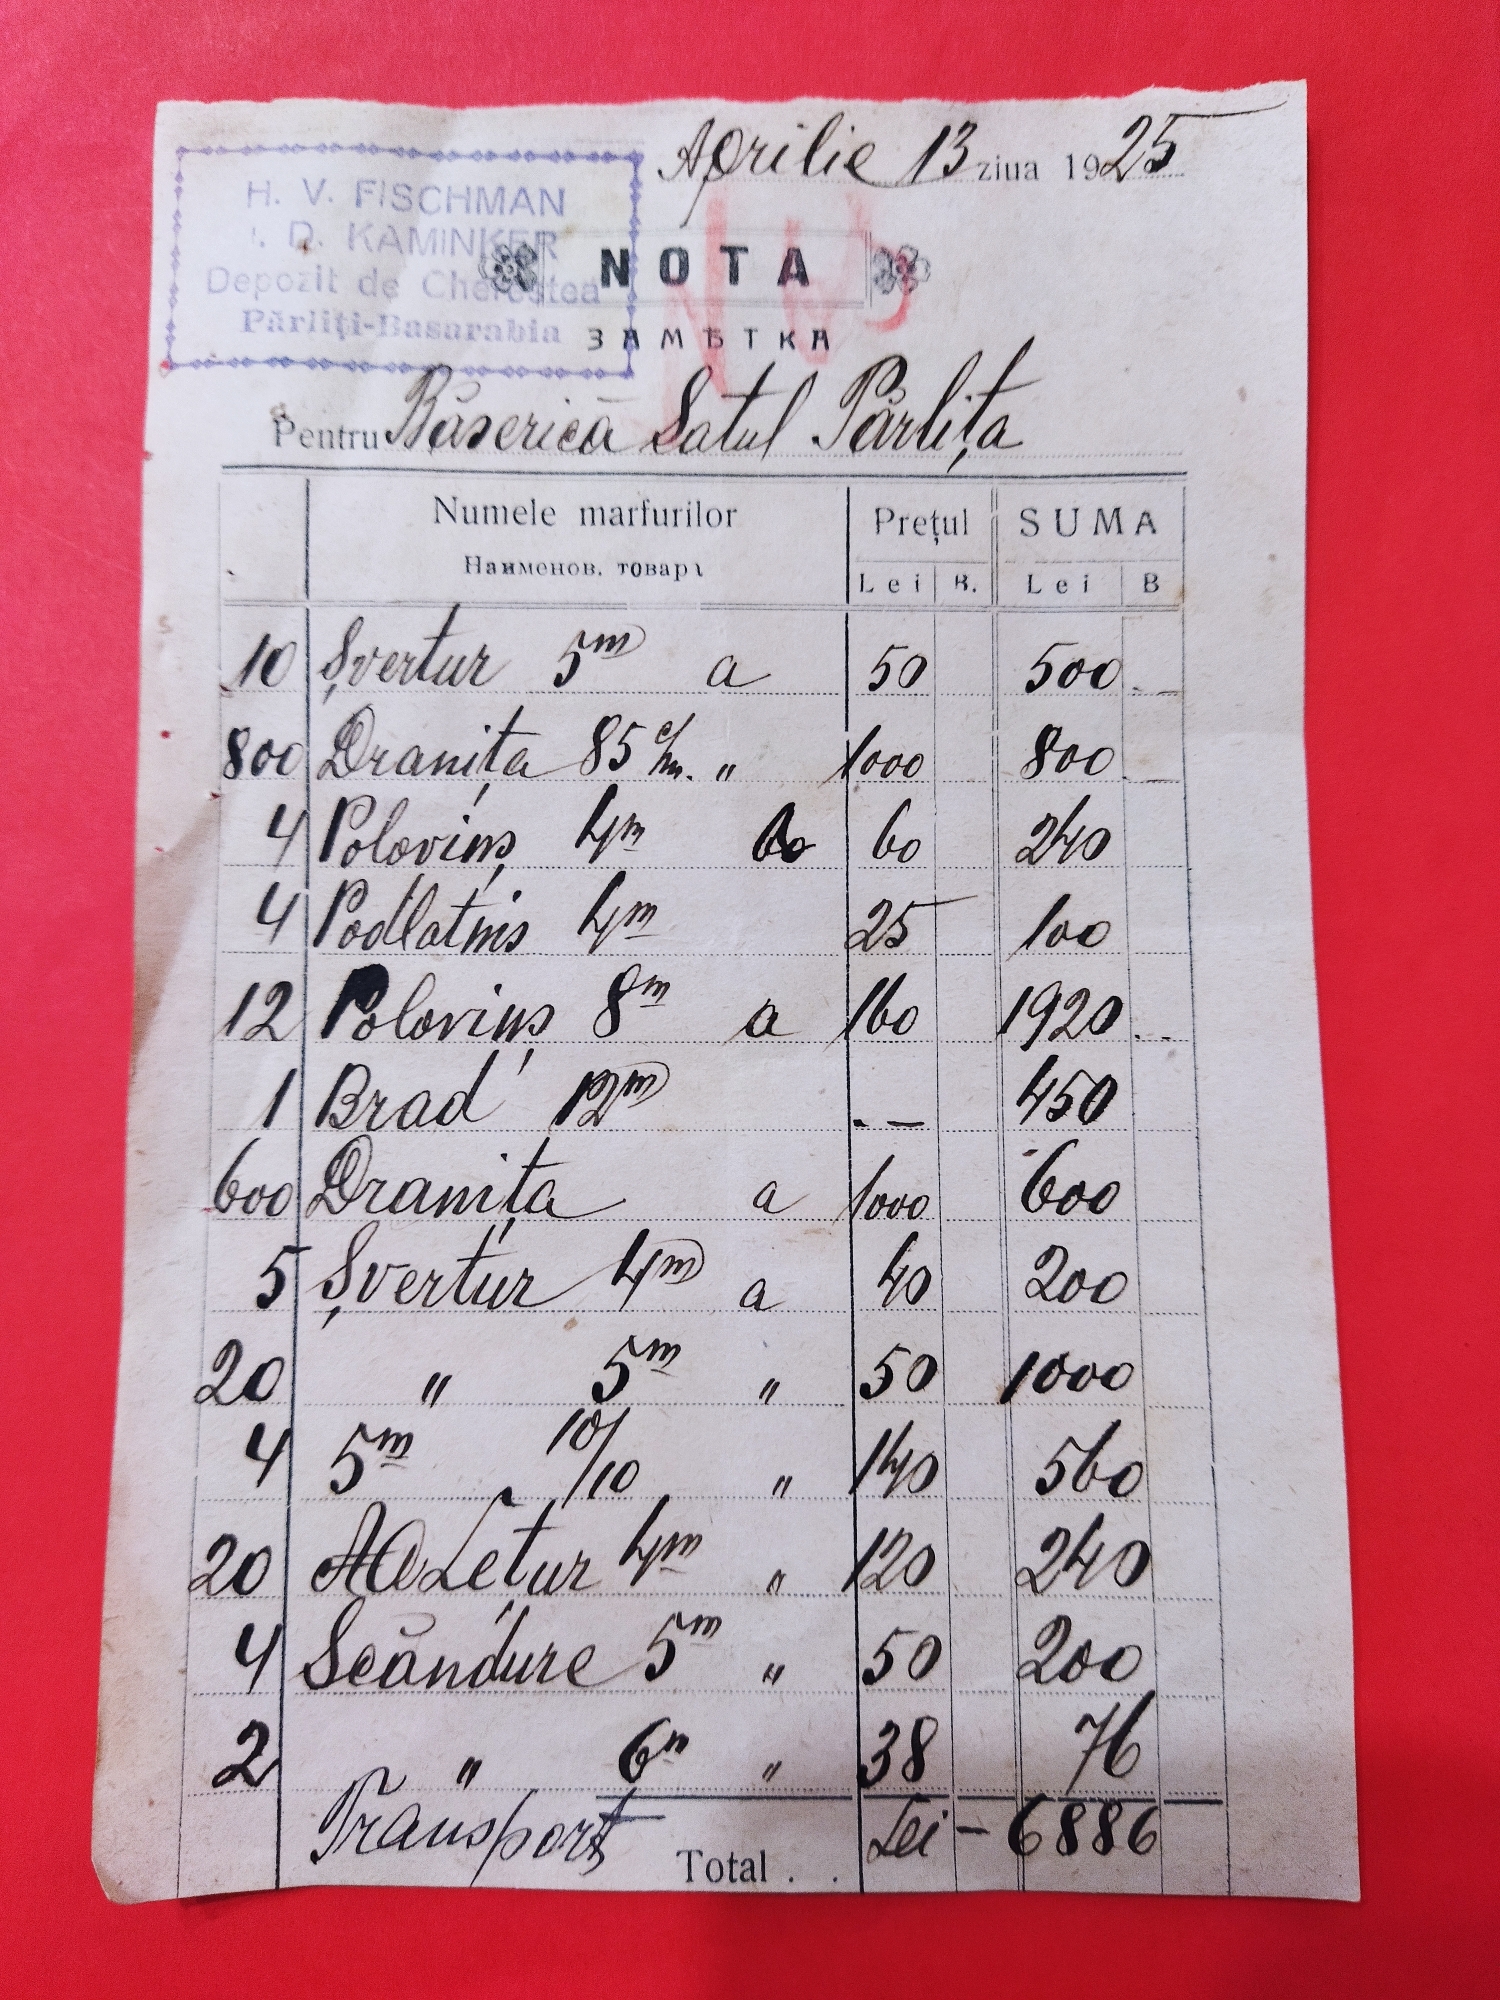 Aprilie 13 ziua 1925
H. V. FISCHMAN
I. D. KAMINKER
Depozit de Cherestea
Părliți-Basarabia
NOTA
ЗАМѢТКА
Pentru Băserică Satul Părlița
Numele marfurilor Prețul SUMA
Наименов. товарı Lei B. Lei B
10 Șvertur 5m a 50 500 . —
800 Dranița 85 c/m. " 1000 800 . —
4 60 240
4 4m 25 100
12 8m a 160 1920 . .
1 Brad 12m . — 450
600 Dranița a 1000 600
5 Șvertur 4m a 40 200
20 " 5m " 50 1000
4 5m 10/10 " 140 560
20 4m " 120 240
4 Scăndure 5m " 50 200
2 " 6m " 38 76
Transport Total . . Lei — 6886